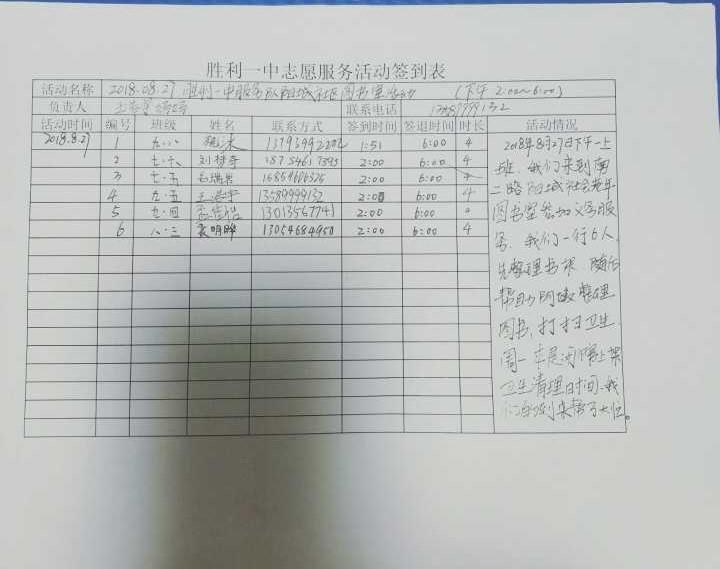 胜利一中志愿服务活动签到表
活动名称 2018.08.27 胜利一中服务队阳城社区图书室活动 (下午 2:00~6:00)
负责人 联系电话
活动时间 编号 班级 姓名 联系方式 签到时间 签退时间 时长 活动情况
2018.8.27 1 九.八 13793992202 1:51 6:00 4 2018年8月27日下午一上
2 七.十八 刘梦奇 18754617393 2:00 6:00 4 班,我们来到南
3 七.五 2:00 6:00 4 二路阳城社会老年
4 九.五 13589999132 2:00 6:00 4 图书室参加义务服
5 九.四 13013567741 2:00 6:00 务,我们一行6人,
6 八.三 袁明晔 13054684950 2:00 6:00 4 先整理书架,随后
帮助阿姨整理
图书,打扫卫生,
周一本是闭馆上架
卫生清理时间,我
们的到来帮了大忙。